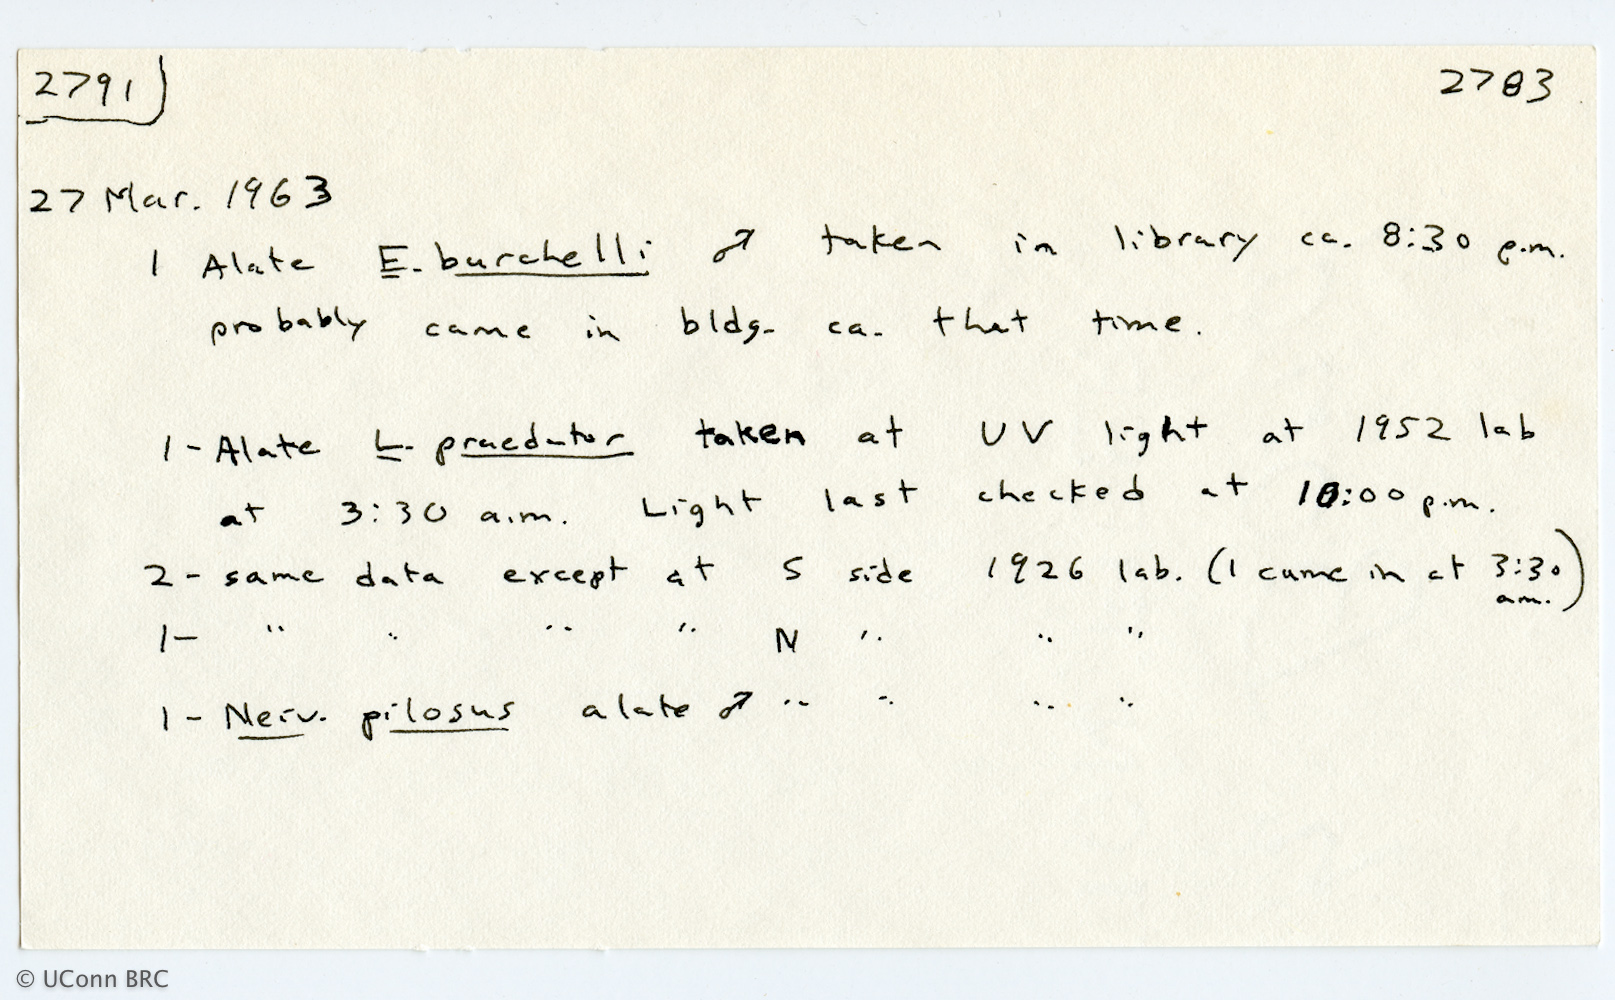 2791 2783
27 Mar. 1963
1 Alate E. burchelli ♂ taken in library ca. 8:30 p.m.
probably came in bldg. ca. that time.
1 - Alate L. praedator taken at UV light at 1952 lab
at 3:30 a.m. Light last checked at 10:00 p.m.
2 - same data except at S side 1926 lab. (1 came in at 3:30 am.)
1 - " " " " N " " "
1 - Neiv. pilosus alate ♂ " " " "
© UConn BRC